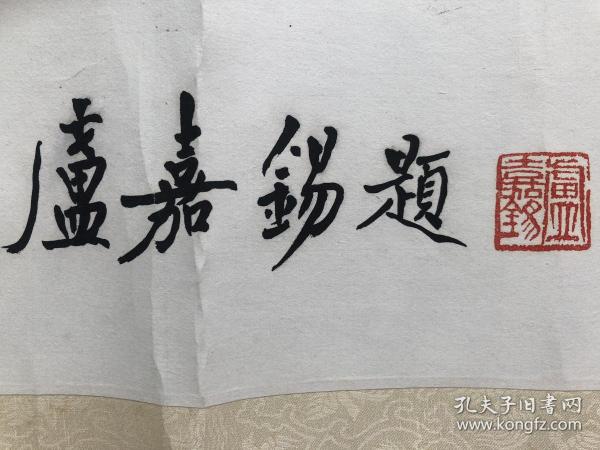 盧嘉錫題
盧嘉錫
孔夫子旧书网
www.kongfz.com